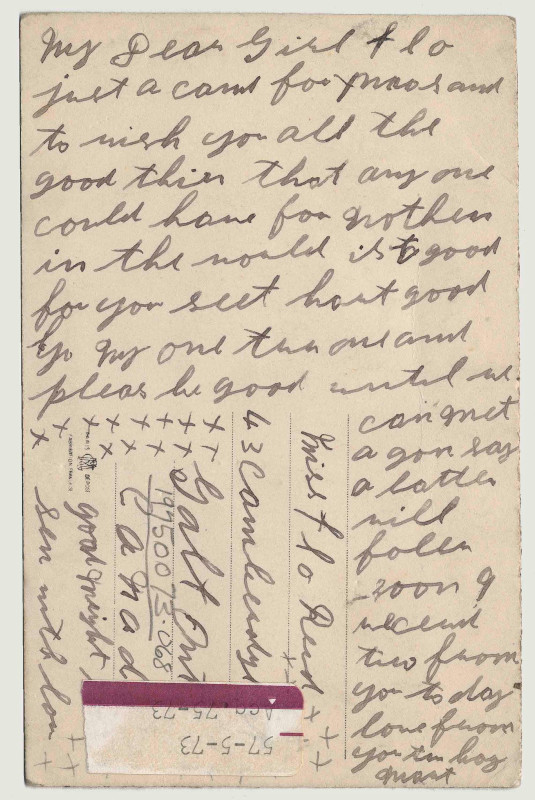 My Dear Girl Flo
just a card for xmas and
to wish you all the
good thien that any one
could have for nothen
in the would is to good
for you seet hart good
by my one tru one and
pleas be good until we
can met
a gon say
a latter
will
folen
soon I
receud
two from
you to day
love from
you tru boy
Mart
Miss Flo Reid
43
Galt Ont
Canad
good night
sen with lov
1975007.068
Acc. 75-73
57-5-73